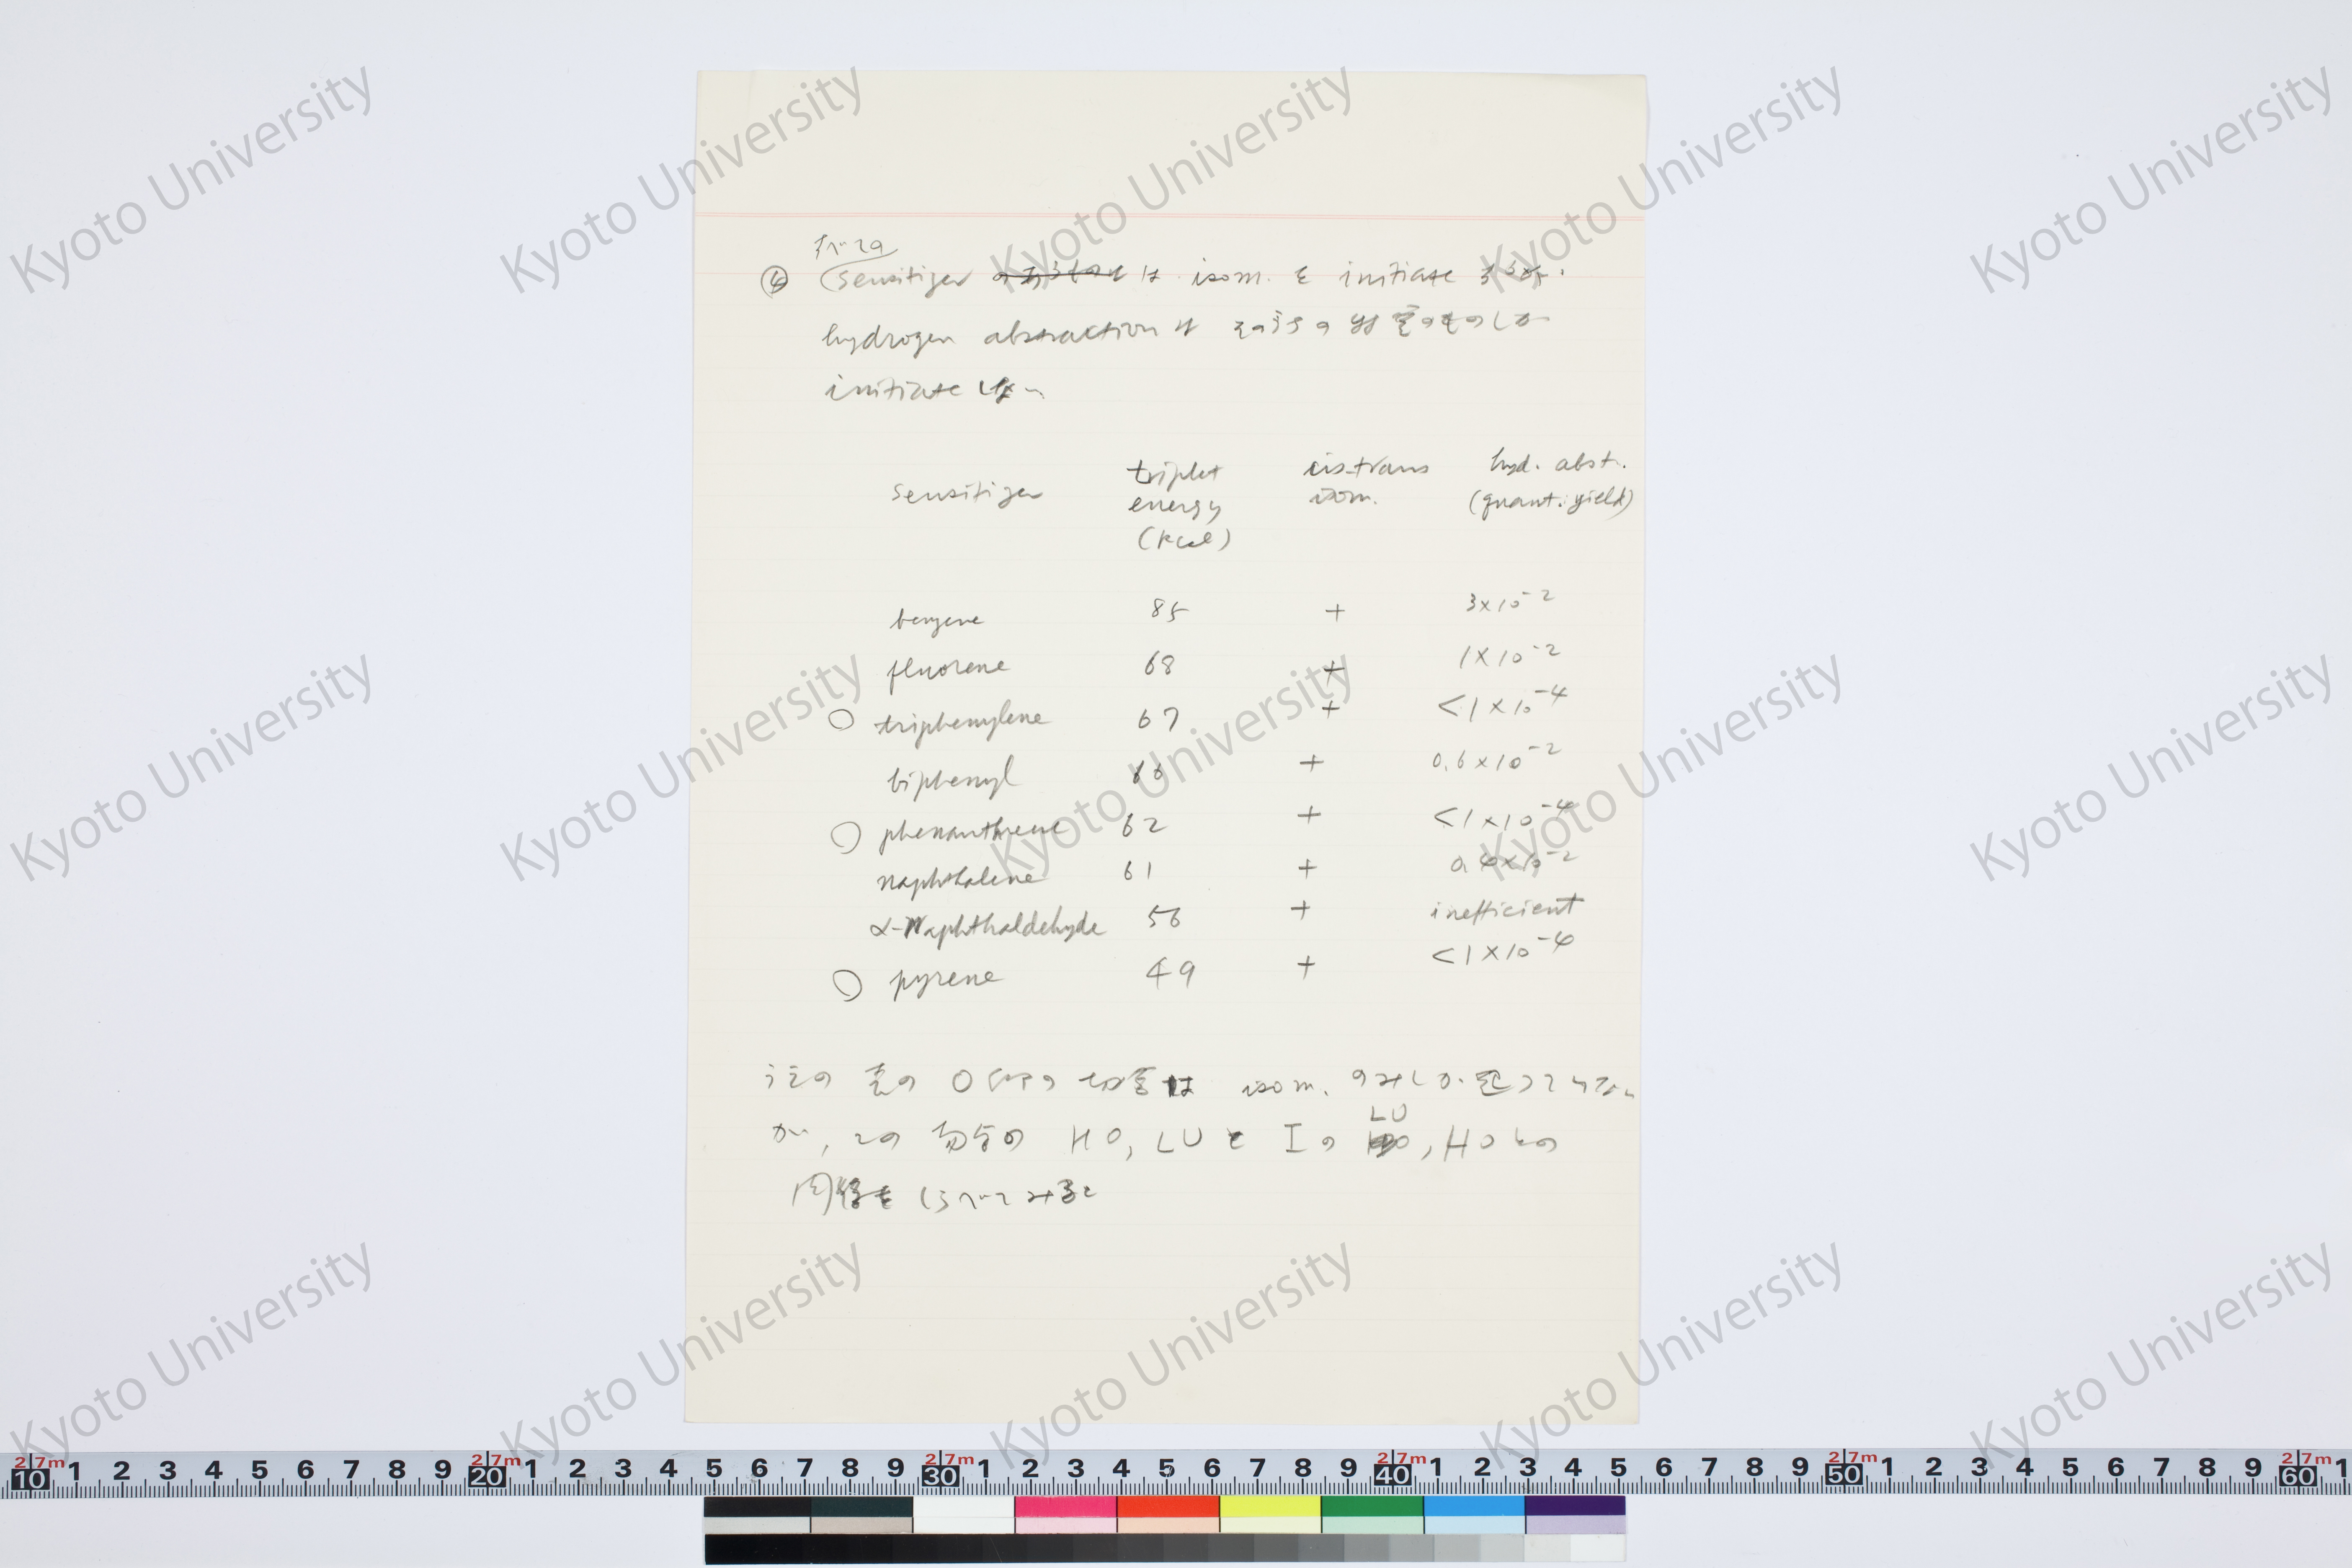 すべての
④ Sensitizer は isom. を initiate するが.
hydrogen abstraction は そのうちの 特定のものしか
initiate しない
Sensitizer triplet energy (kcal) cis-trans isom. hyd. abst. (quant. yield)
benzene 85 + 3×10⁻²
fluorene 68 + 1×10⁻²
○ triphenylene 67 + <1×10⁻⁴
biphenyl 66 + 0.6×10⁻²
○ phenanthrene 62 + <1×10⁻⁴
naphthalene 61 + 0.4×10⁻²
α-Naphthaldehyde 56 + inefficient
○ pyrene 49 + <1×10⁻⁴
表の ○ 印の は isom. のみしか 起っていない
LU
が, この 場合の HO, LU と I の , HO との
関係を しらべてみること
Kyoto University